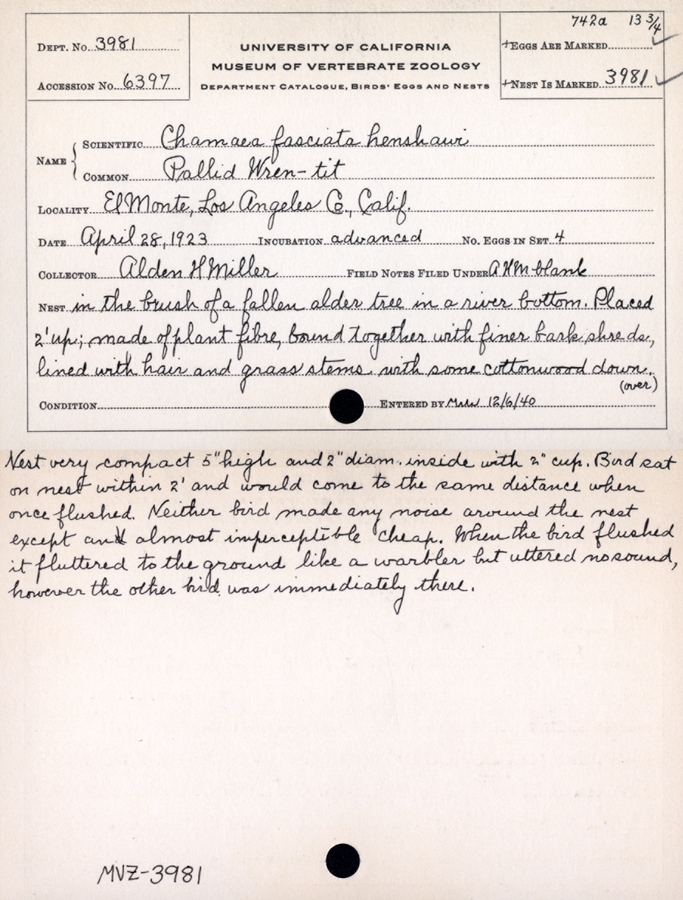 742a 13 3/4
DEPT. NO. 3981
UNIVERSITY OF CALIFORNIA
+EGGS ARE MARKED ✓
MUSEUM OF VERTEBRATE ZOOLOGY
ACCESSION NO. 6397
DEPARTMENT CATALOGUE, BIRDS' EGGS AND NESTS
+NEST IS MARKED 3981 ✓
NAME { SCIENTIFIC Chamaea fasciata henshawi
COMMON Pallid Wren-tit
LOCALITY El Monte, Los Angeles Co., Calif.
DATE April 28, 1923 INCUBATION advanced NO. EGGS IN SET 4
COLLECTOR Alden H Miller FIELD NOTES FILED UNDER AHM-blank
NEST in the brush of a fallen alder tree in a river bottom. Placed
2' up; made of plant fibre, bound together with finer bark shreds,
lined with hair and grass stems with some cottonwood down.
(over)
CONDITION ENTERED BY 12/6/40
Nest very compact 5" high and 2" diam. inside with 2" cup. Bird sat
on nest within 2' and would come to the same distance when
once flushed. Neither bird made any noise around the nest
except an almost imperceptible cheap. When the bird flushed
it fluttered to the ground like a warbler but uttered no sound,
however the other bird was immediately there.
MVZ-3981